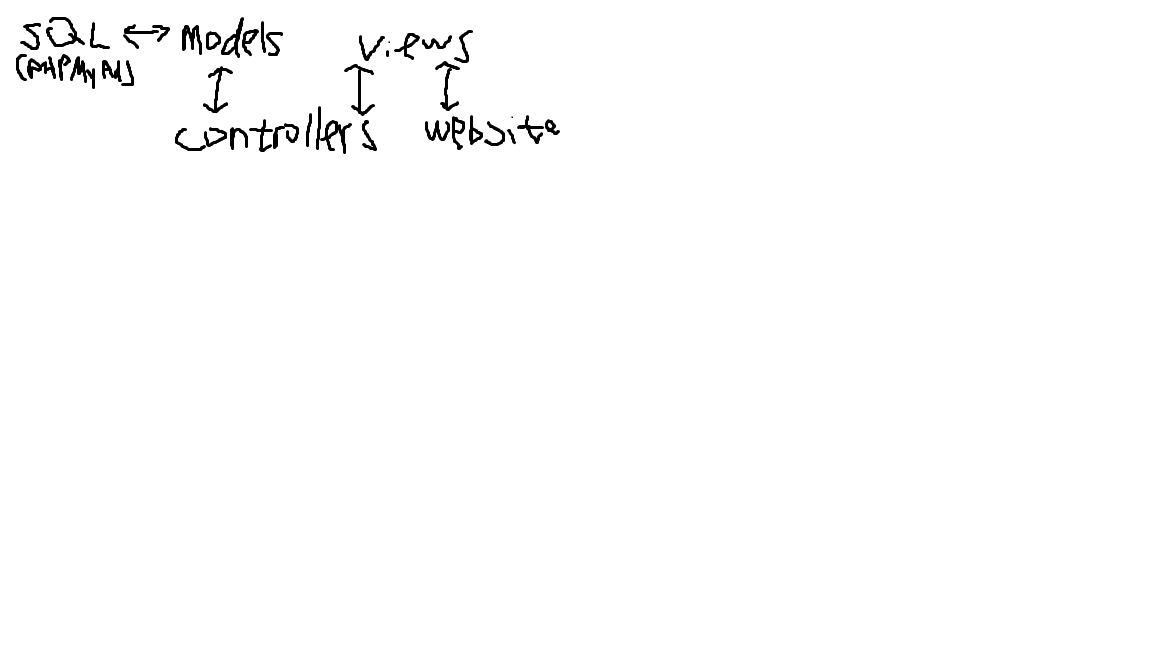 SQL ↔ Models views
(PHPMyAd)
controllers website